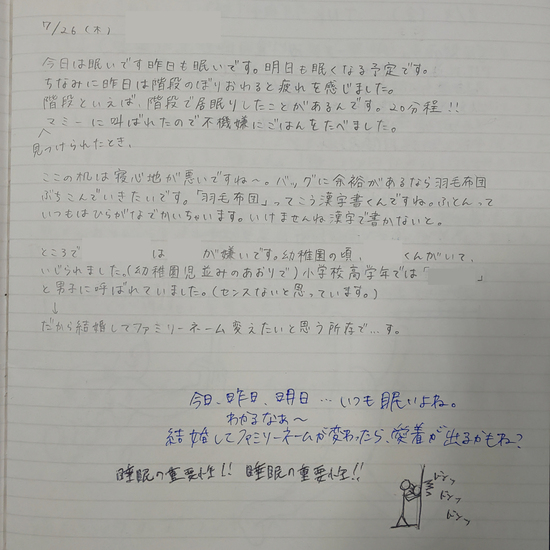 7/26 (木)
今日は眠いです昨日も眠いです。明日も眠くなる予定です。
ちなみに昨日は階段のぼりおわると疲れを感じました。
階段といえば、階段で居眠りしたことがあるんです。20分程!!
マミーに叫ばれたので不機嫌にごはんをたべました。
見つけられたとき、
ここの机は寝心地が悪いですね〜。バッグに余裕があるなら羽毛布団
ぶちこんでいきたいです。「羽毛布団」ってこう漢字書くんですね。ふとんって
いつもはひらがなでかいちゃいます。いけませんね漢字で書かないと。
ところで は が嫌いです。幼稚園の頃、 くんがいて、
いじられました。(幼稚園児並みのあおりで)小学校高学年では「 」
と男子に呼ばれていました。(センスないと思っています。)
↓
だから結婚してファミリーネーム変えたいと思う所存で…す。
今日、昨日、明日…いつも眠いよね。
わかるなあ〜
結婚してファミリーネームが変わったら、愛着が出るかもね?
睡眠の重要性!! 睡眠の重要性!!
ドンッ
ドンッ
ドンッ